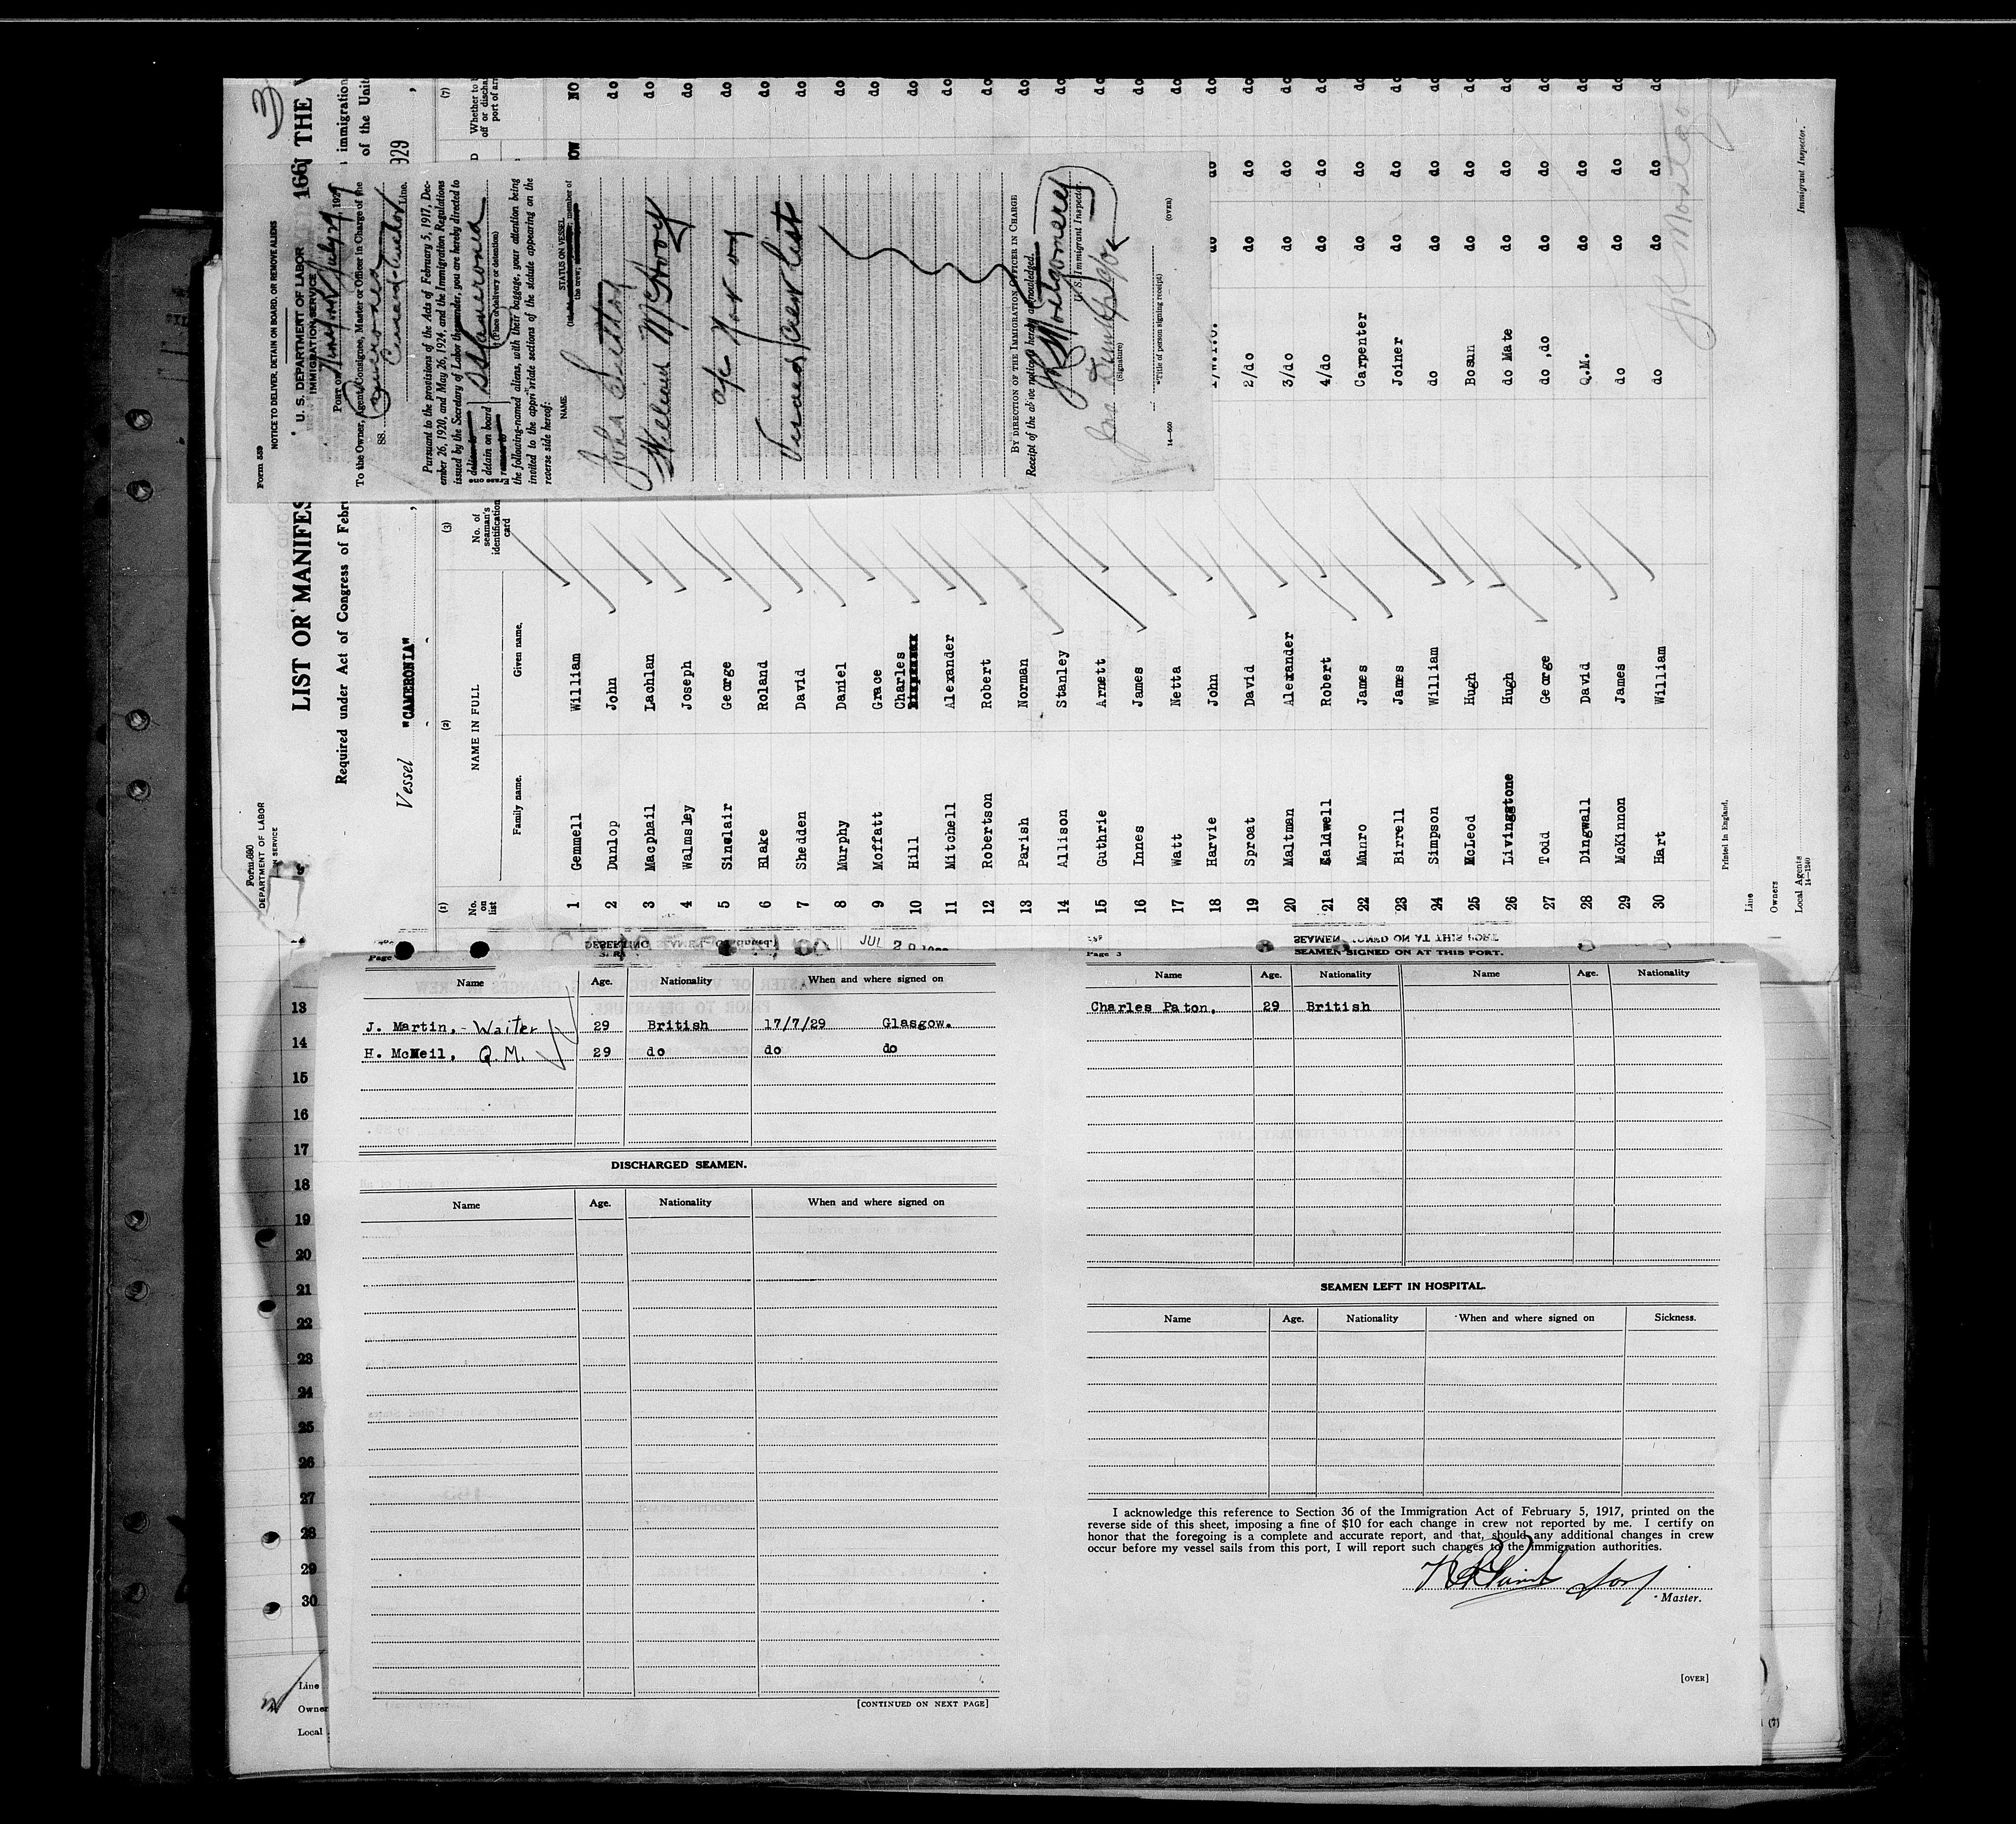 3
Form 559
NOTICE TO DELIVER, DETAIN ON BOARD, OR REMOVE ALIENS
U. S. DEPARTMENT OF LABOR
IMMIGRATION SERVICE
PORT OF New York July 29 1929
To the Owner, Agent, Consignee, Master or Officer in Charge of the
SS. Cameronia
Cunard-Anchor Line.
Pursuant to the provisions of the Acts of February 5, 1917, Dec-
ember 26, 1920, and May 26, 1924, and the Immigration Regulations
issued by the Secretary of Labor thereunder, you are hereby directed to
detain on board SS Cameronia
(Place of delivery or detention)
the following-named aliens, with their baggage, your attention being
invited to the appropriate sections of the statute appearing on the
reverse side hereof:
NAME. STATUS ON VESSEL
member of
the crew,
John
William McIlroy
a/c Not on
Visaed Crew List
BY DIRECTION OF THE IMMIGRATION OFFICER IN CHARGE
Receipt of the above notice is hereby acknowledged.
U. S. Immigrant Inspector.
(Signature)
(Title of person signing receipt)
14—500
(OVER)
Form 680
DEPARTMENT OF LABOR
N SERVICE
LIST OR MANIFES
166
N THE
Required under Act of Congress of Febru
immigration
of the Unite
929
Vessel "CAMERONIA"
(1) (2) (3) (7)
No. on list
NAME IN FULL
Family name. Given name.
No. of seaman's identification card
Whether to
off or discha
port of arr
1 Gemmell William NO
2 Dunlop John do
3 Macphail Lachlan do
4 Walmsley Joseph do
5 Sinclair George do
6 Blake Roland do
7 Shedden David do
8 Murphy Daniel do
9 Moffatt Grace do
10 Hill Charles do
11 Mitchell Alexander do
12 Robertson Robert do
13 Parish Norman do
14 Allison Stanley do
15 Guthrie Arnett do
16 Innes James do
17 Watt Netta do
18 Harvie John do do do
19 Sproat David 2/do do do do
20 Maltman Alexander 3/do do do do
21 Caldwell Robert 4/do do do do
22 Munro James Carpenter do do do
23 Birrell James Joiner do do do
24 Simpson William do do do do
25 McLeod Hugh Bosun do do do
26 Livinggtone Hugh do Mate do do do
27 Todd George do ,do do do do
28 Dingwall David Q.M. do do do
29 McKinnon James do do do do
30 Hart William do do do do
Printed in England.
Line
Owners
Local Agents
14—1240
Immigrant Inspector.
JUL 2
Page
DESERTING SEAMEN
Name Age. Nationality When and where signed on
J. Martin. - Waiter 29 British 17/7/29 Glasgow.
H. McNeil. Q.M. 29 do do do
DISCHARGED SEAMEN.
Name Age. Nationality When and where signed on
[CONTINUED ON NEXT PAGE]
Page 3
SEAMEN SIGNED ON AT THIS PORT.
Name Age. Nationality Name Age. Nationality
Charles Paton. 29 British
SEAMEN LEFT IN HOSPITAL.
Name Age. Nationality When and where signed on Sickness.
I acknowledge this reference to Section 36 of the Immigration Act of February 5, 1917, printed on the
reverse side of this sheet, imposing a fine of $10 for each change in crew not reported by me. I certify on
honor that the foregoing is a complete and accurate report, and that, should any additional changes in crew
occur before my vessel sails from this port, I will report such changes to the immigration authorities.
Master.
[OVER]
13
14
15
16
17
18
19
20
21
22
23
24
25
26
27
28
29
30
Line
Owner
Local
(7)